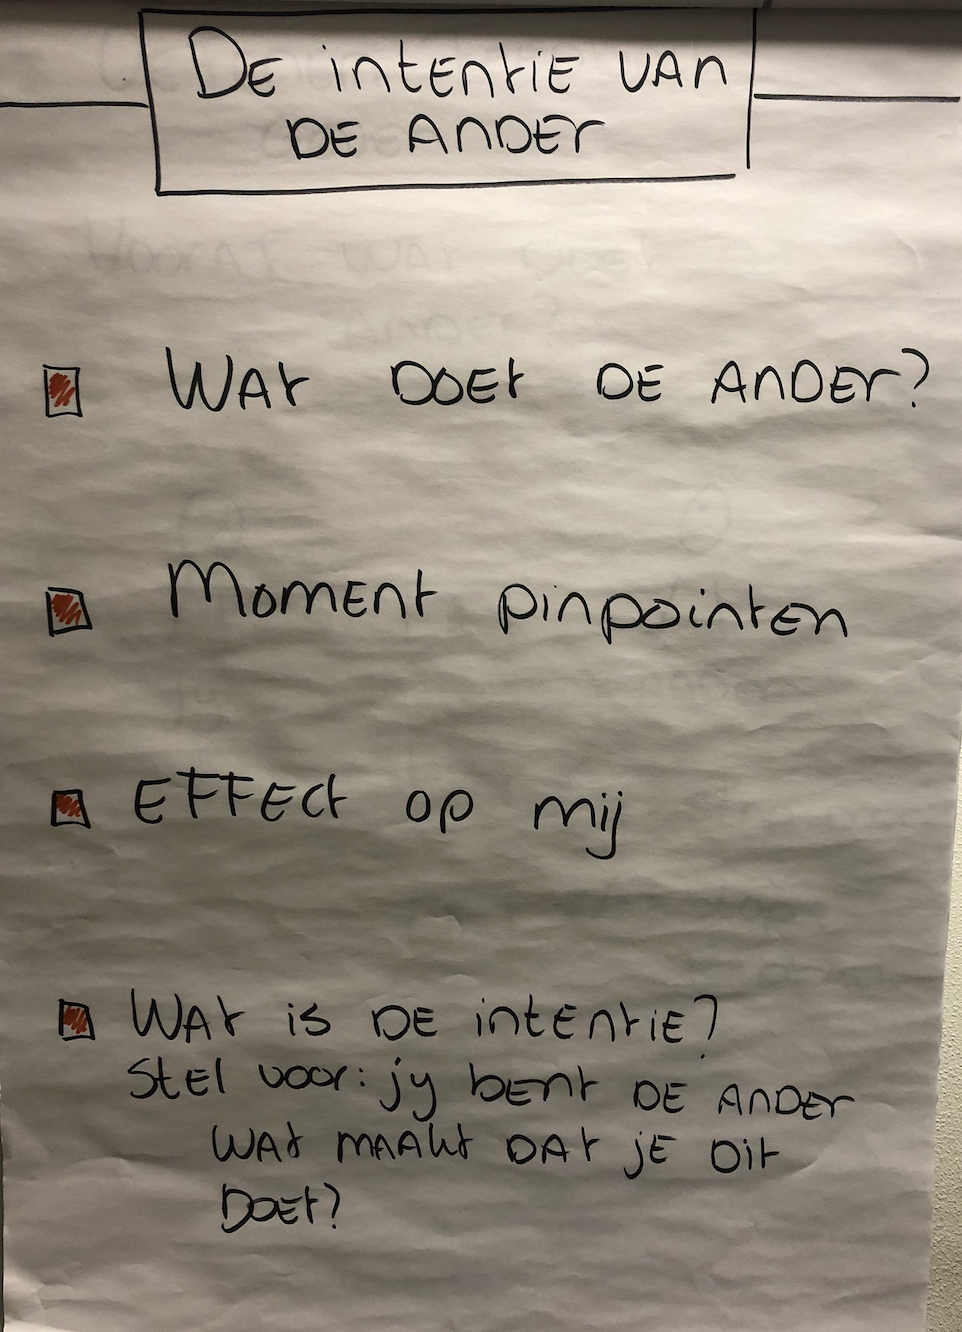 De intentie van
de ander
Wat doet de ander?
Moment pinpointen
Effect op mij
Wat is de intentie?
Stel voor: jy bent de ander
wat maakt dat je dit
doet?